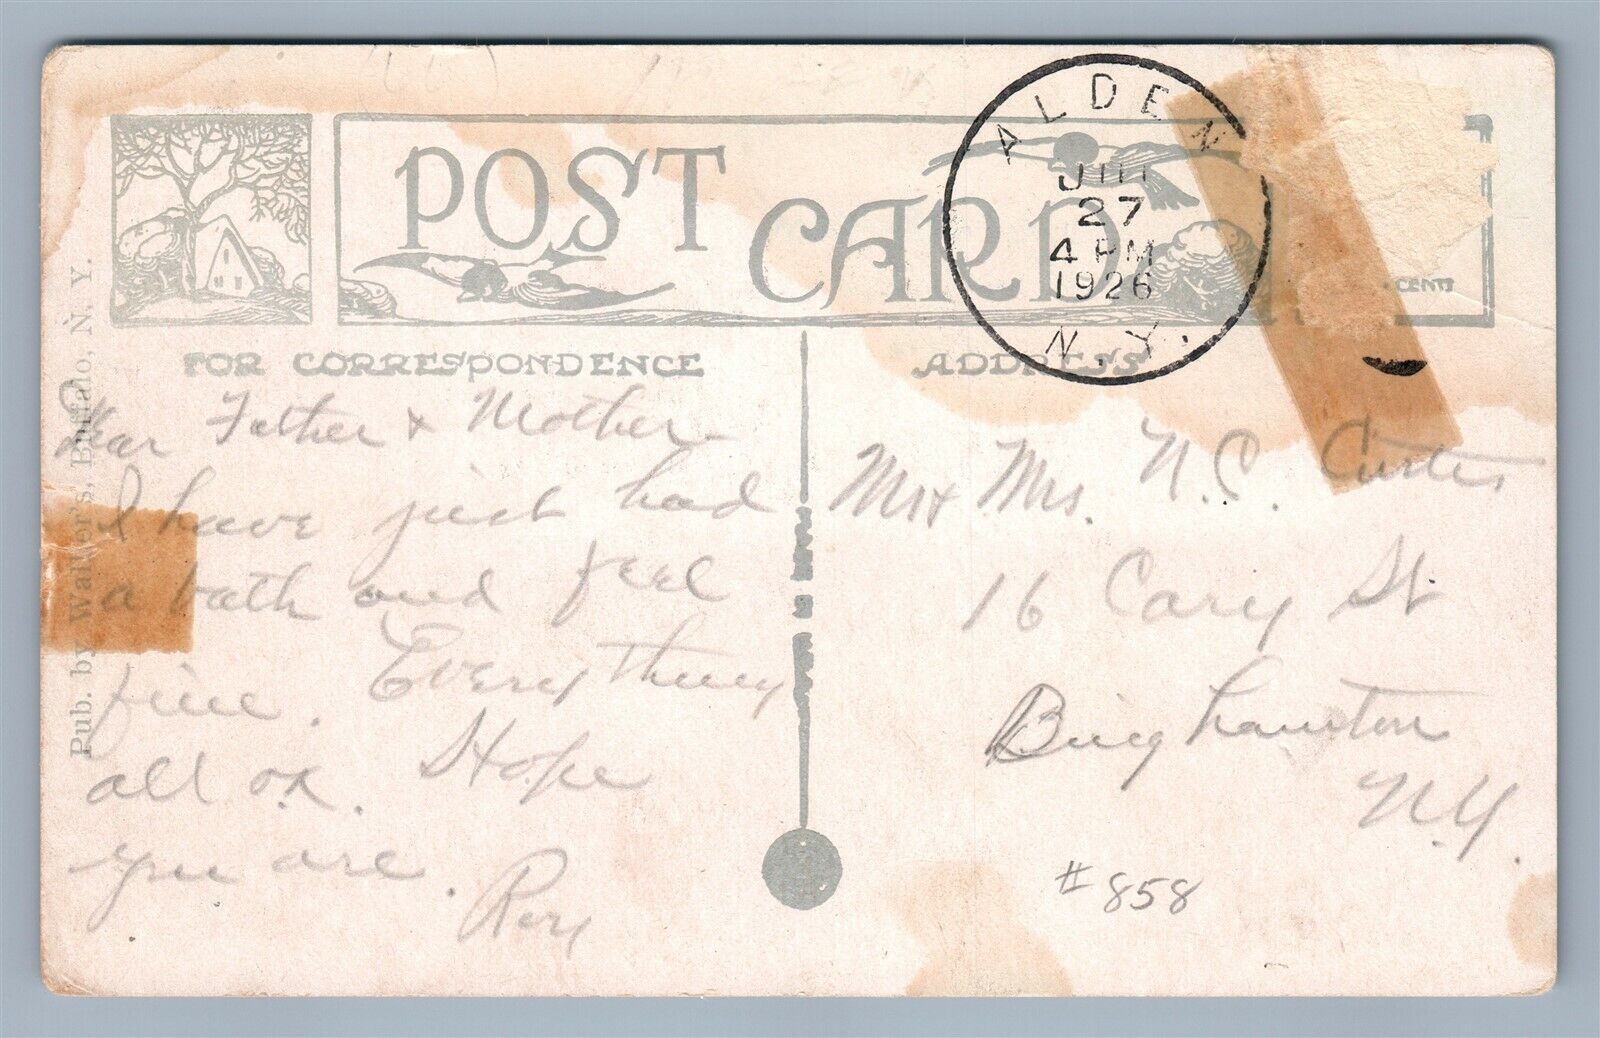 POST CARD
ALDEN
27
4 PM
1926
N.Y.
CENT
FOR CORRESPONDENCE
ADDRESS
Pub. by Walker's, Buffalo, N. Y.
Dear Father & Mother
I have just had
a bath and feel
fine. Everything
all o.k. Hope
you are.
Roy
Mr & Mrs. N. C. Curtis
16 Cary St
Binghamton
N.Y.
#858